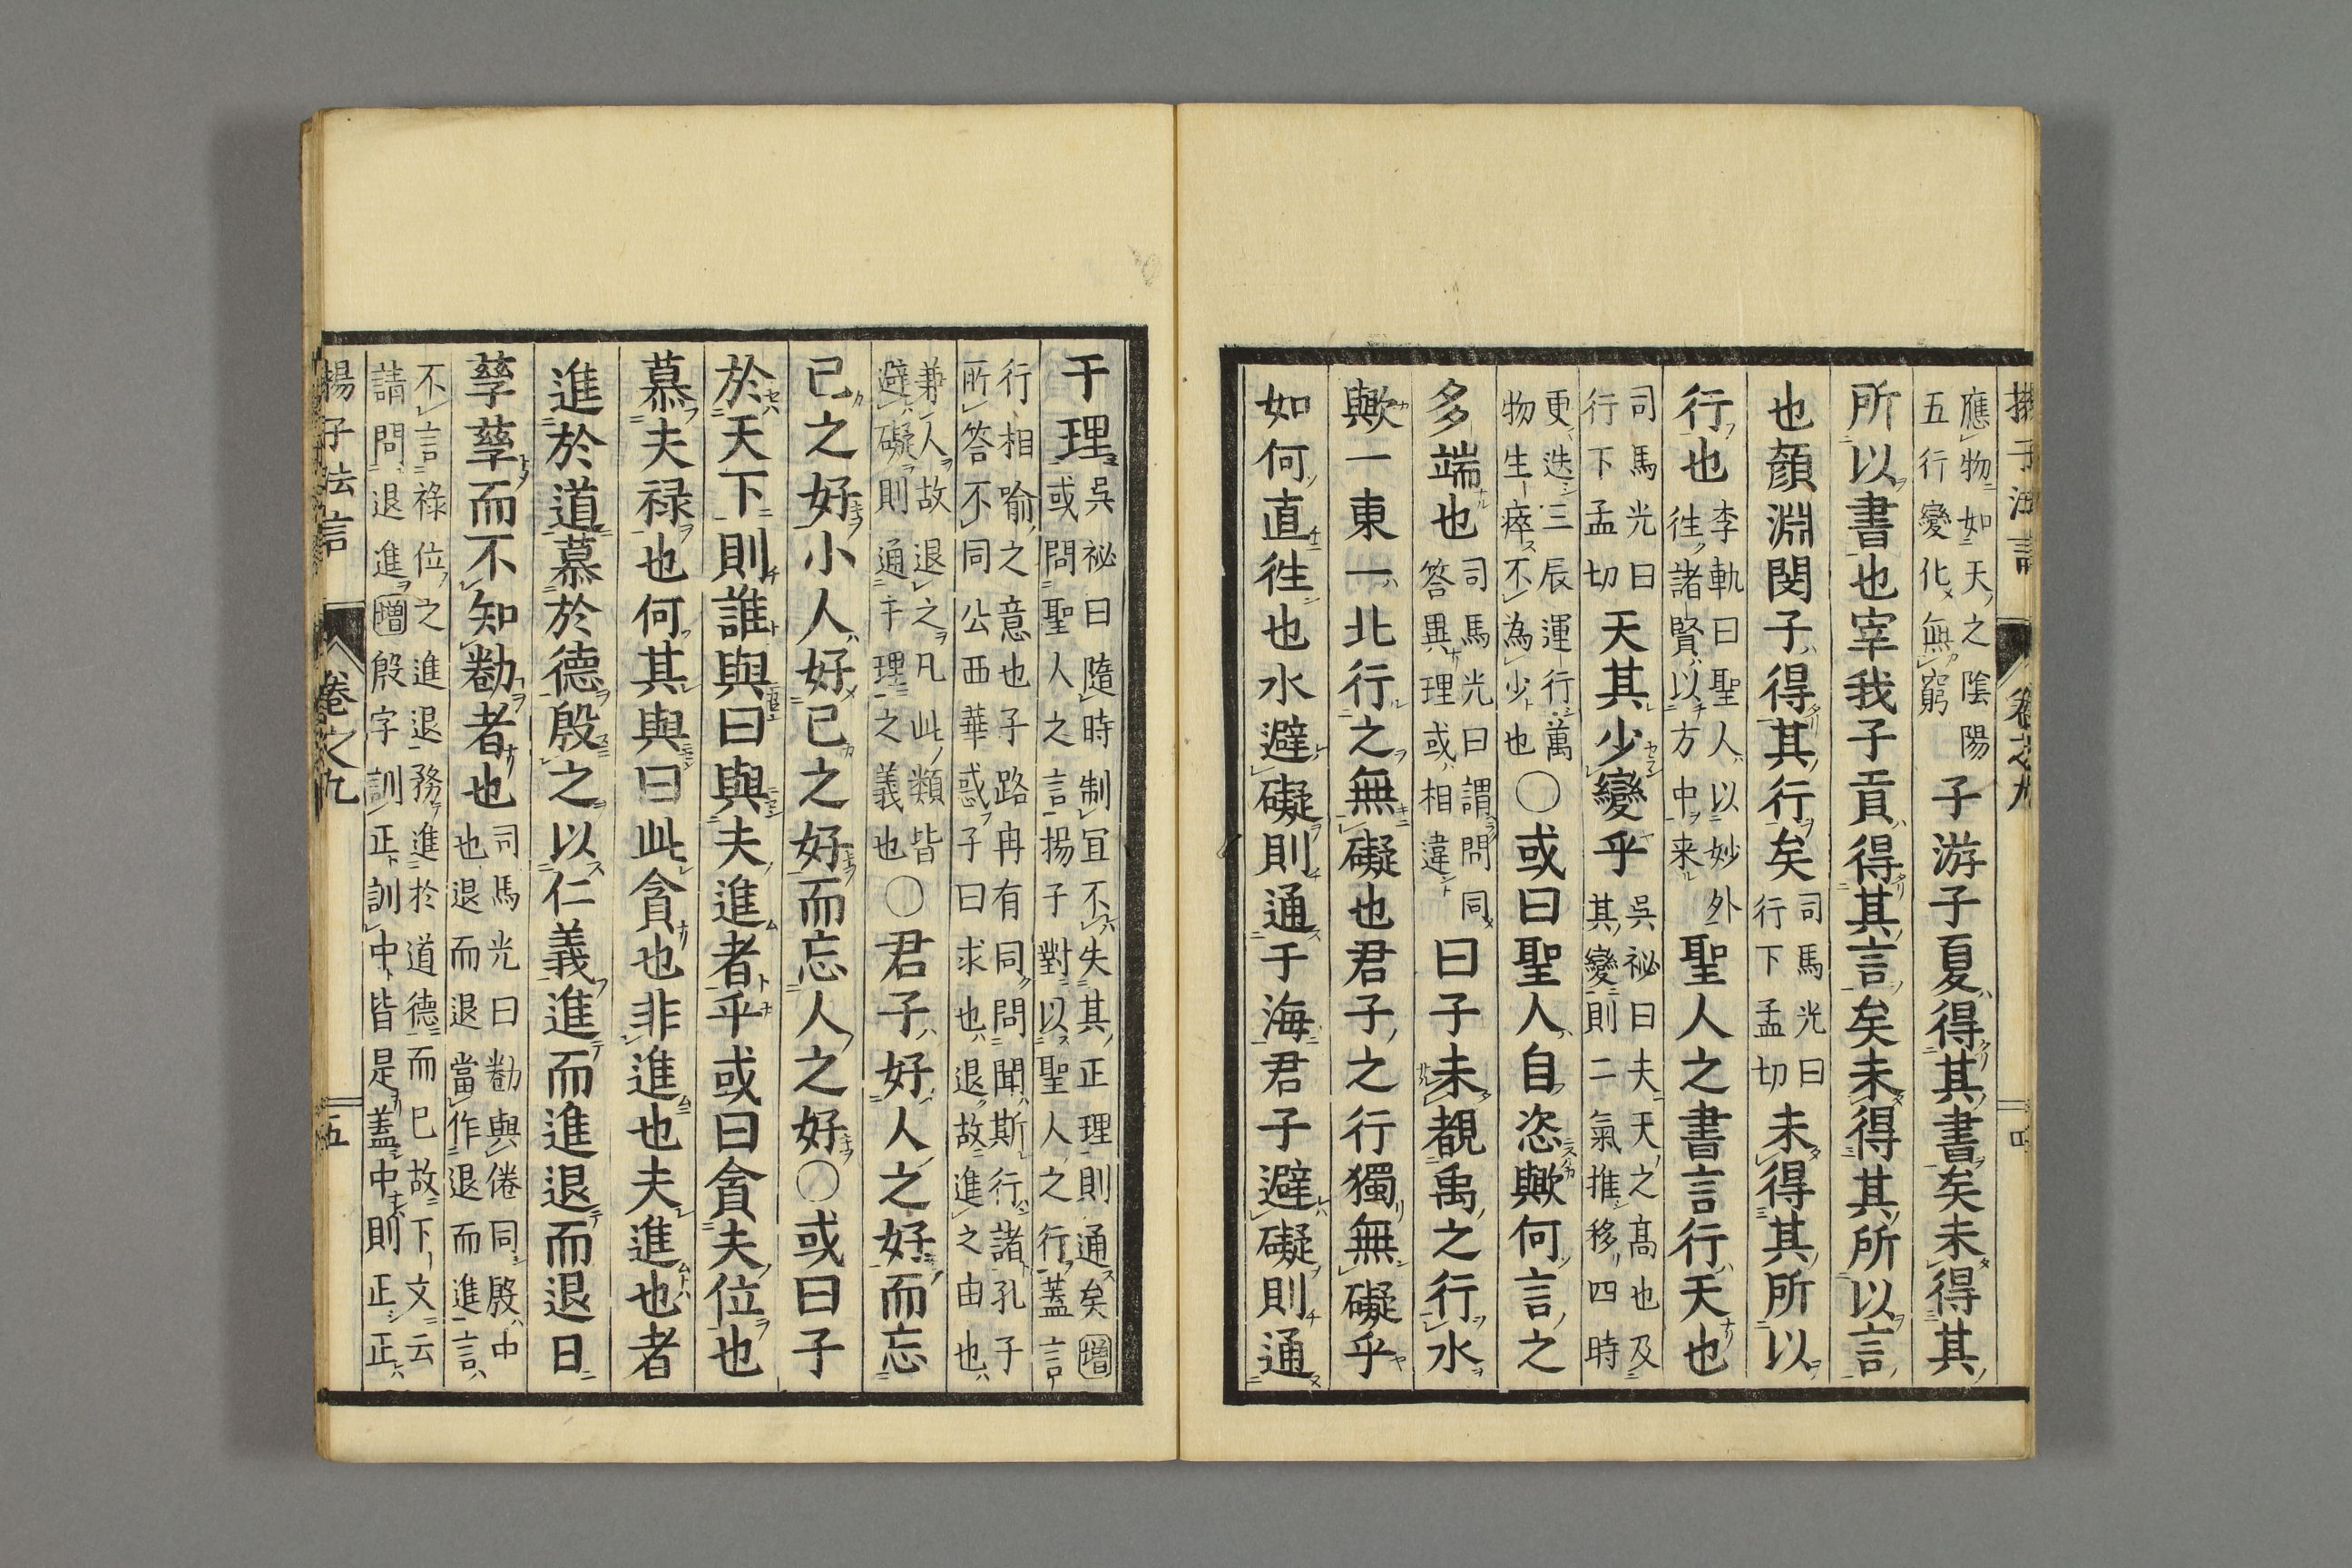 揚子法言 卷之九 四
應物如天之陰陽
五行變化無窮
子游子夏得其書矣未得其
所以書也宰我子貢得其言矣未得其所以言
也顏淵閔子得其行矣
司馬光曰
行下孟切
未得其所以
行也
李軌曰聖人以妙外
徃諸賢以方中来
聖人之書言行天也
司馬光曰
行下孟切
天其少變乎
吳祕曰夫天之高也及
其變則二氣推移四時
更迭三辰運行萬
物生瘁不為少也
〇或曰聖人自恣歟何言之
多端也
司馬光曰謂問同
答異理或相違
曰子未覩禹之行水
歟一東一北行之無礙也君子之行獨無礙乎
如何直徃也水避礙則通于海君子避礙則通
于理
吳祕曰隨時制宜不失其正理則通矣增
或問聖人之言揚子對以聖人之行蓋言
行相喻之意也子路冉有同問聞斯行諸孔子
所答不同公西華惑子曰求也退故進之由也
兼人故退之凡此類皆
避礙則通于理之義也
〇君子好人之好而忘
己之好小人好己之好而忘人之好〇或曰子
於天下則誰與曰與夫進者乎或曰貪夫位也
慕夫禄也何其與曰此貪也非進也夫進也者
進於道慕於德殷之以仁義進而進退而退日
孳孳而不知勌者也
司馬光曰勌與倦同殷中
也退而退當作退而進言
不言祿位之進退務進於道德而已故下文云
請問退進增殷字訓正訓中皆是蓋中則正正
揚子法言 卷之九 五